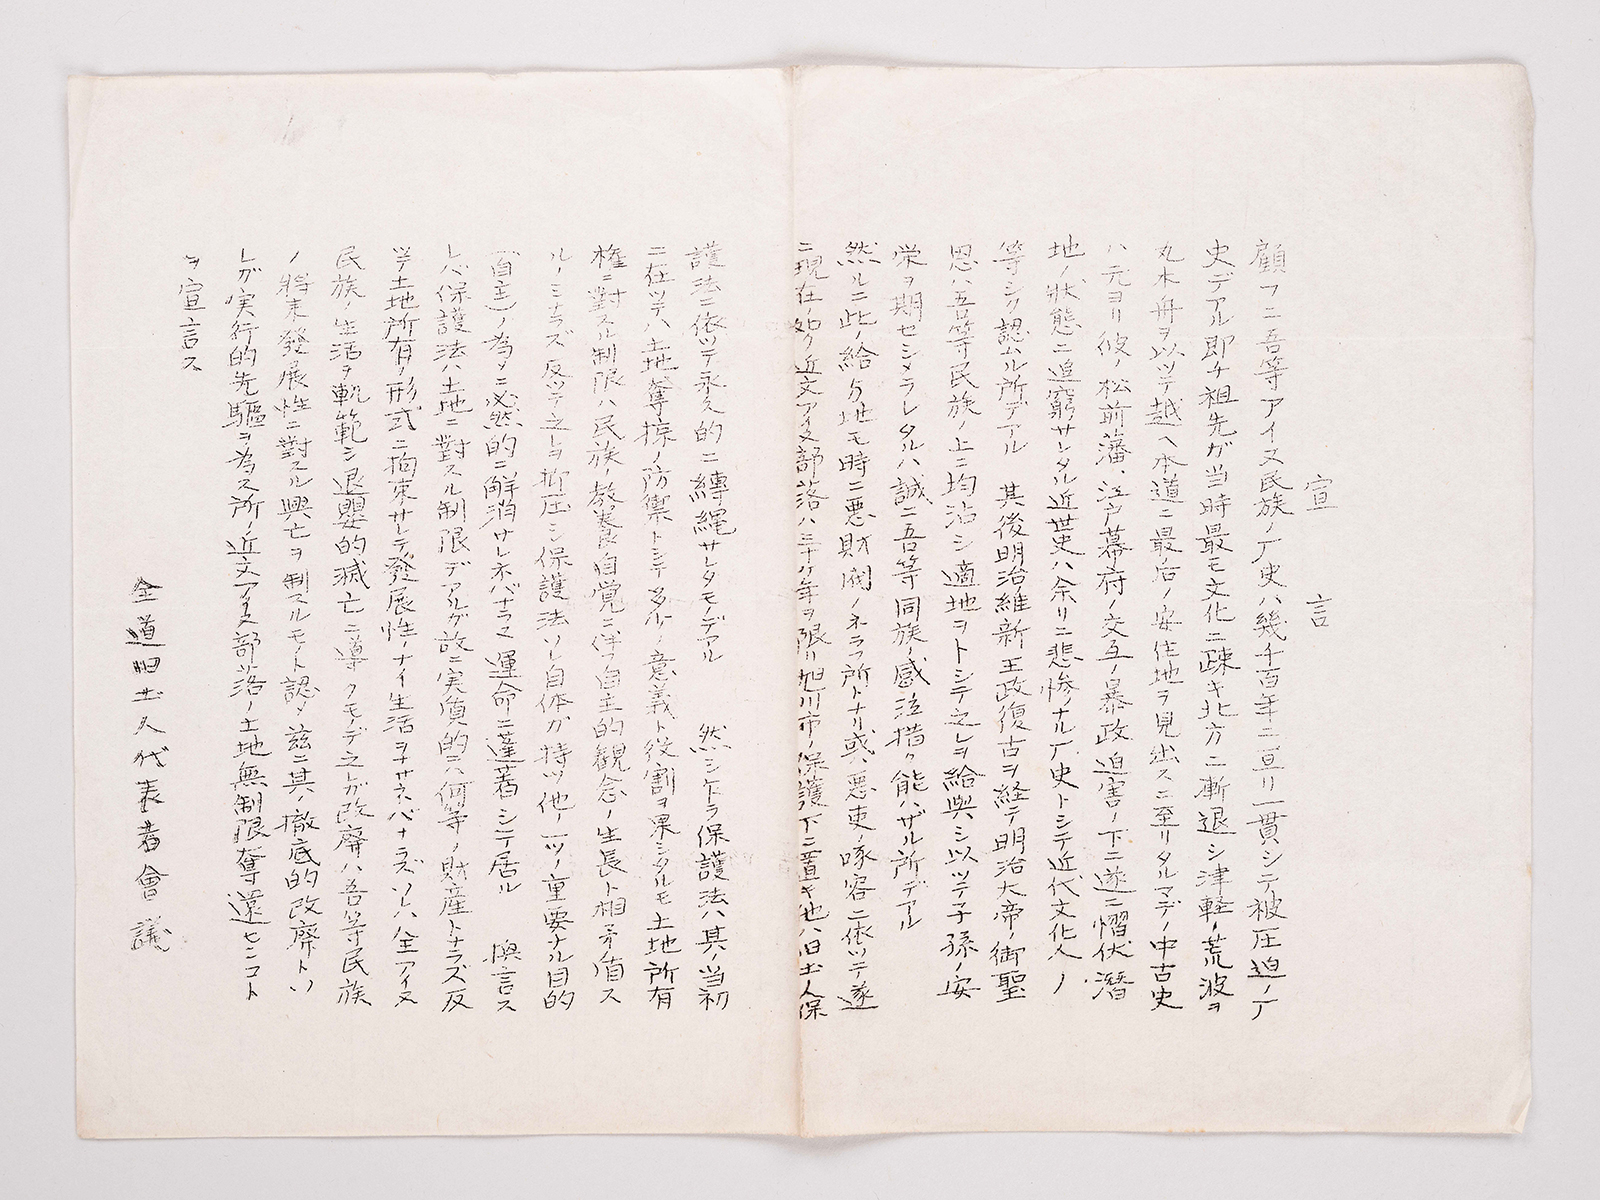 宣言
顧フニ吾等アイヌ民族ノ厂史ハ幾千百年ニ亘リ一貫シテ被圧迫ノ厂
史デアル即チ祖先ガ当時最モ文化ニ疎キ北方ニ漸退シ津軽ノ荒波ヲ
丸木舟ヲ以ツテ越ヘ本道ニ最后ノ安住地ヲ見出スニ至リタルマデノ中古史
ハ元ヨリ彼ノ松前藩、江戸幕府ノ交互ノ暴政迫害ノ下ニ遂ニ慴伏潜
地ノ状態ニ追窮サレタル近世史ハ余リニ悲惨ノナル厂史トシテ近代文化人ノ
等シク認ムル所デアル 其後明治維新王政復古ヲ経テ明治大帝ノ御聖
恩ハ吾等民族ノ上ニ均沾シ適地ヲトシテ之レヲ給與シ以ツテ子孫ノ安
栄ヲ期セシメラレタルハ誠ニ吾等同族ノ感泣措ク能ハザル所デアル
然ルニ此ノ給与地モ時ニ悪財閥ノネラフ所トナリ或ハ悪吏ノ啄容ニ依ツテ遂
ニ現在ノ如ク近文アイヌ部落ハ三十ケ年ヲ限リ旭川市ノ保護下ニ置キ他ハ旧土人保
護法ニ依ツテ永久的ニ縛縄サレタモノデアル 然シ乍ラ保護法ハ其ノ当初
ニ在ツテハ土地奪掠ノ防禦トシテ多少ノ意義ト役割ヲ果シタルモ土地所有
権ニ對スル制限ハ民族ノ教養自覚ニ伴フ自主的観念ノ生長ト相矛盾ス
ルノミナラズ反ツテ之レヲ抑圧シ保護法ソレ自体ガ持ツ他ノ一ツノ重要ナル目的
(自主)ノ為メニ必然的ニ解消サレネバナラヌ運命ニ蓬着シテ居ル 換言ス
レバ保護法ハ土地ニ對スル制限デアルガ故ニ実質的ニハ何等ノ財産トナラズ反
ツテ土地所有ノ形式ニ拘束サレテ發展性ノナイ生活ヲナサネバナラズソレハ全アイヌ
民族ノ生活ヲ軌範シ退嬰的滅亡ニ導クモノデ之レガ改廃ハ吾等民族
ノ將来發展性ニ對スル興亡ヲ制スルモノト認メ茲ニ其ノ撤底的改廃トソ
レガ実行的先驅ヲ為ス所ノ近文アイヌ部落ノ土地無制限奪還センコト
ヲ宣言ス
全道旧土人代表者會議